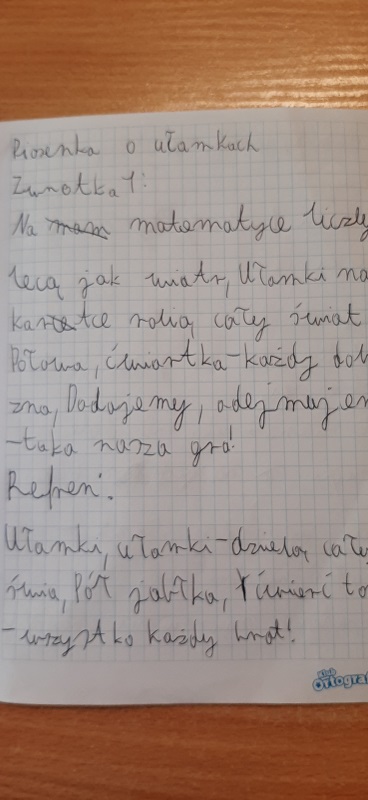 Piosenka o ułamkach
Zwrotka 1:
Na matematyce liczby
lecą jak wiatr, Ułamki na
kartce robią cały świat
Połowa, ćwiartka - każdy dob
zna, Dodajemy, odejmujem
- taka nasza gra!
Refren:
Ułamki, ułamki - dzielą cały
świa, Pół jabłka, ćwierć to
- wszystko każdy brat!
Ortogra